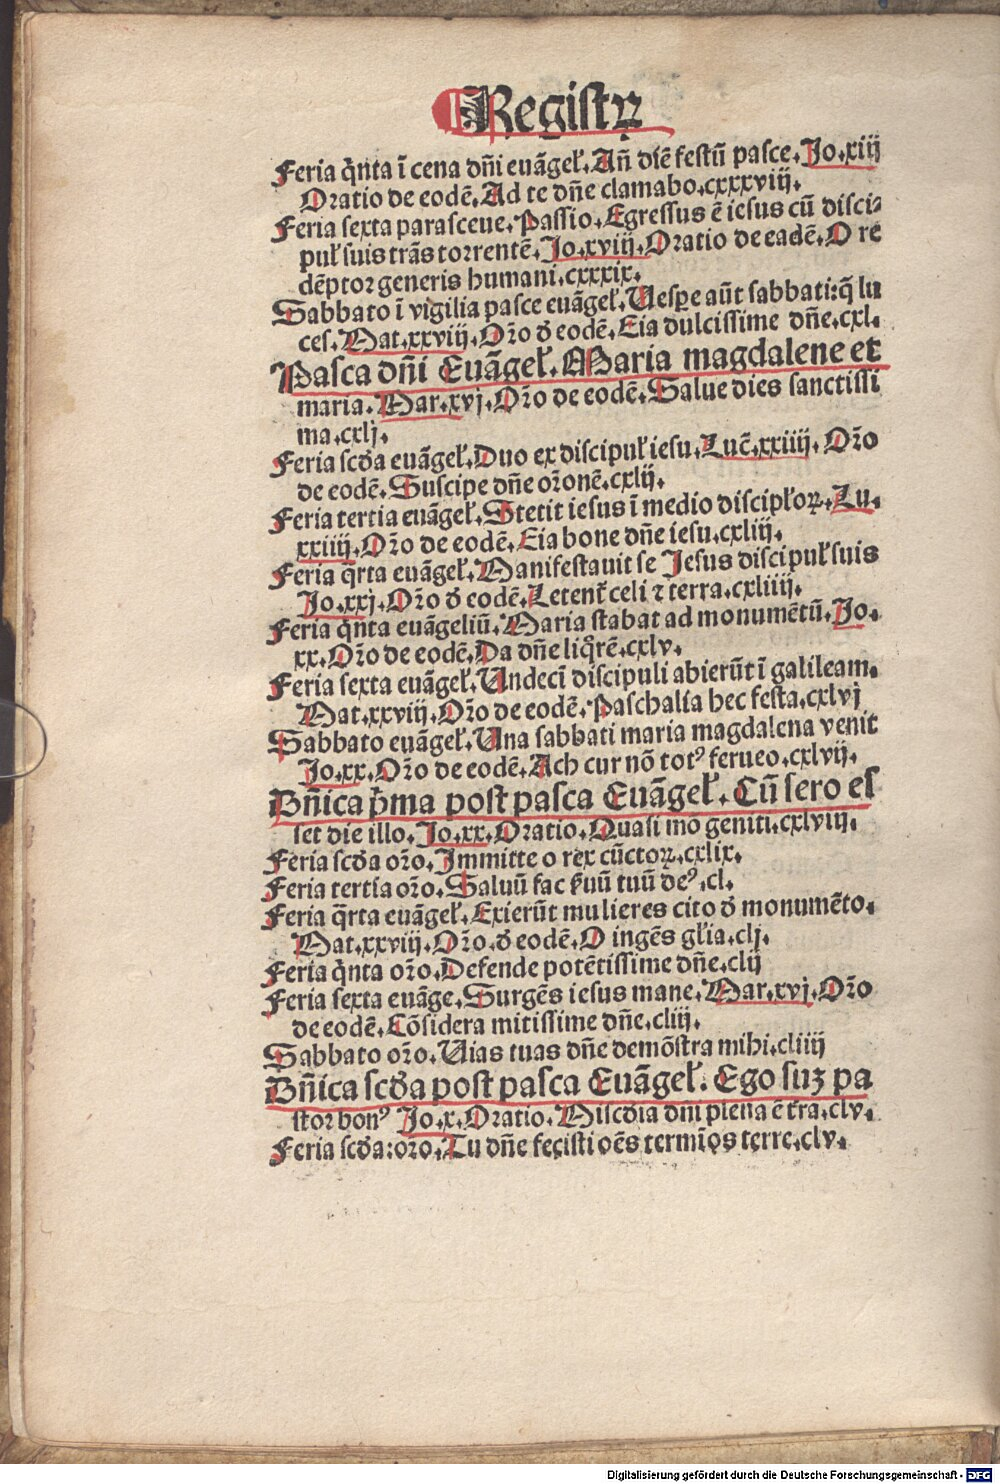 ¶ Registꝝ
Feria q̇nta ī cena dn̄i euāgeƚ. An̄ diē festū pasce. Jo.xiij
Oratio de eodē. Ad te dn̄e clamabo.cxxxviij.
Feria sexta parasceue. Passio. Egressus ē iesus cū disci⸗
puƚ suis trās torrentē. Jo.xviij. Oratio de eadē. O re
dēptor generis humani.cxxxix.
Sabbato ī vigilia pasce euāgeƚ. Uespe aūt sabbati: q̄ lu
ces. Mat.xxviij. Or̄o ꝺ̉ eodē. Eia dulcissime dn̄e.cxl.
Pasca dn̄i Euāgeƚ. Maria magdalene et
maria. Mar.xvj. Or̄o de eodē. Salue dies sanctissi
ma.cxlj.
Feria scꝺ̉a euāgeƚ. Duo ex discipuƚ iesu. Luc̄.xxiiij. Or̄o
de eodē. Suscipe dn̄e or̄onē.cxlij.
Feria tertia euāgeƚ. Stetit iesus ī medio discipƚoꝝ. Lu.
xxiiij. Or̄o de eodē. Eia bone dn̄e iesu.cxliij.
Feria q̄rta euāgeƚ. Manifestauit se Jesus discipuƚ suis
Jo.xxj. Or̄o ꝺ̉ eodē. Letent᷑ celi ⁊ terra.cxliiij.
Feria q̇nta euāgeliū. Maria stabat ad monumētū. Jo.
xx. Or̄o de eodē. Da dn̄e liq̊rē.cxlv.
Feria sexta euāgeƚ. Undecī discipuli abierūt ī galileam.
Mat.xxviij. Or̄o de eodē. Paschalia hec festa.cxlvj
Sabbato euāgeƚ. Una sabbati maria magdalena venit
Jo.xx. Or̄o de eodē. Ach cur nō totꝰ ferueo.cxlvij.
Dn̄ica p̄ma post pasca Euāgeƚ. Cū sero es
set die illo. Jo.xx. Oratio. Quasi mō geniti.cxlviij.
Feria scꝺ̉a or̄o. Immitte o rex cūctoꝝ.cxlix.
Feria tertia or̄o. Saluū fac ẜuū tuū deꝰ.cl.
Feria q̄rta euāgeƚ. Exierūt mulieres cito ꝺ̉ monumēto.
Mat.xxviij. Or̄o.ꝺ̉ eodē. O ingēs gƚia.clj.
Feria q̇nta or̄o. Defende potētissime dn̄e.clij
Feria sexta euāge. Surgēs iesus mane. Mar.xvj. Or̄o
de eodē. Cōsidera mitissime dn̄e.cliij.
Sabbato or̄o. Uias tuas dn̄e demōstra mihi.cliiij
Dn̄ica scꝺ̉a post pasca Euāgeƚ. Ego suꝫ pa
stor bonꝰ Jo.x. Oratio. Miscꝺ̉ia dni plena ē t̄ra.clv.
Feria scꝺ̉a: or̄o. Tu dn̄e fecisti oēs termīos terre.clv.
Digitalisierung gefördert durch die Deutsche Forschungsgemeinschaft - DFG